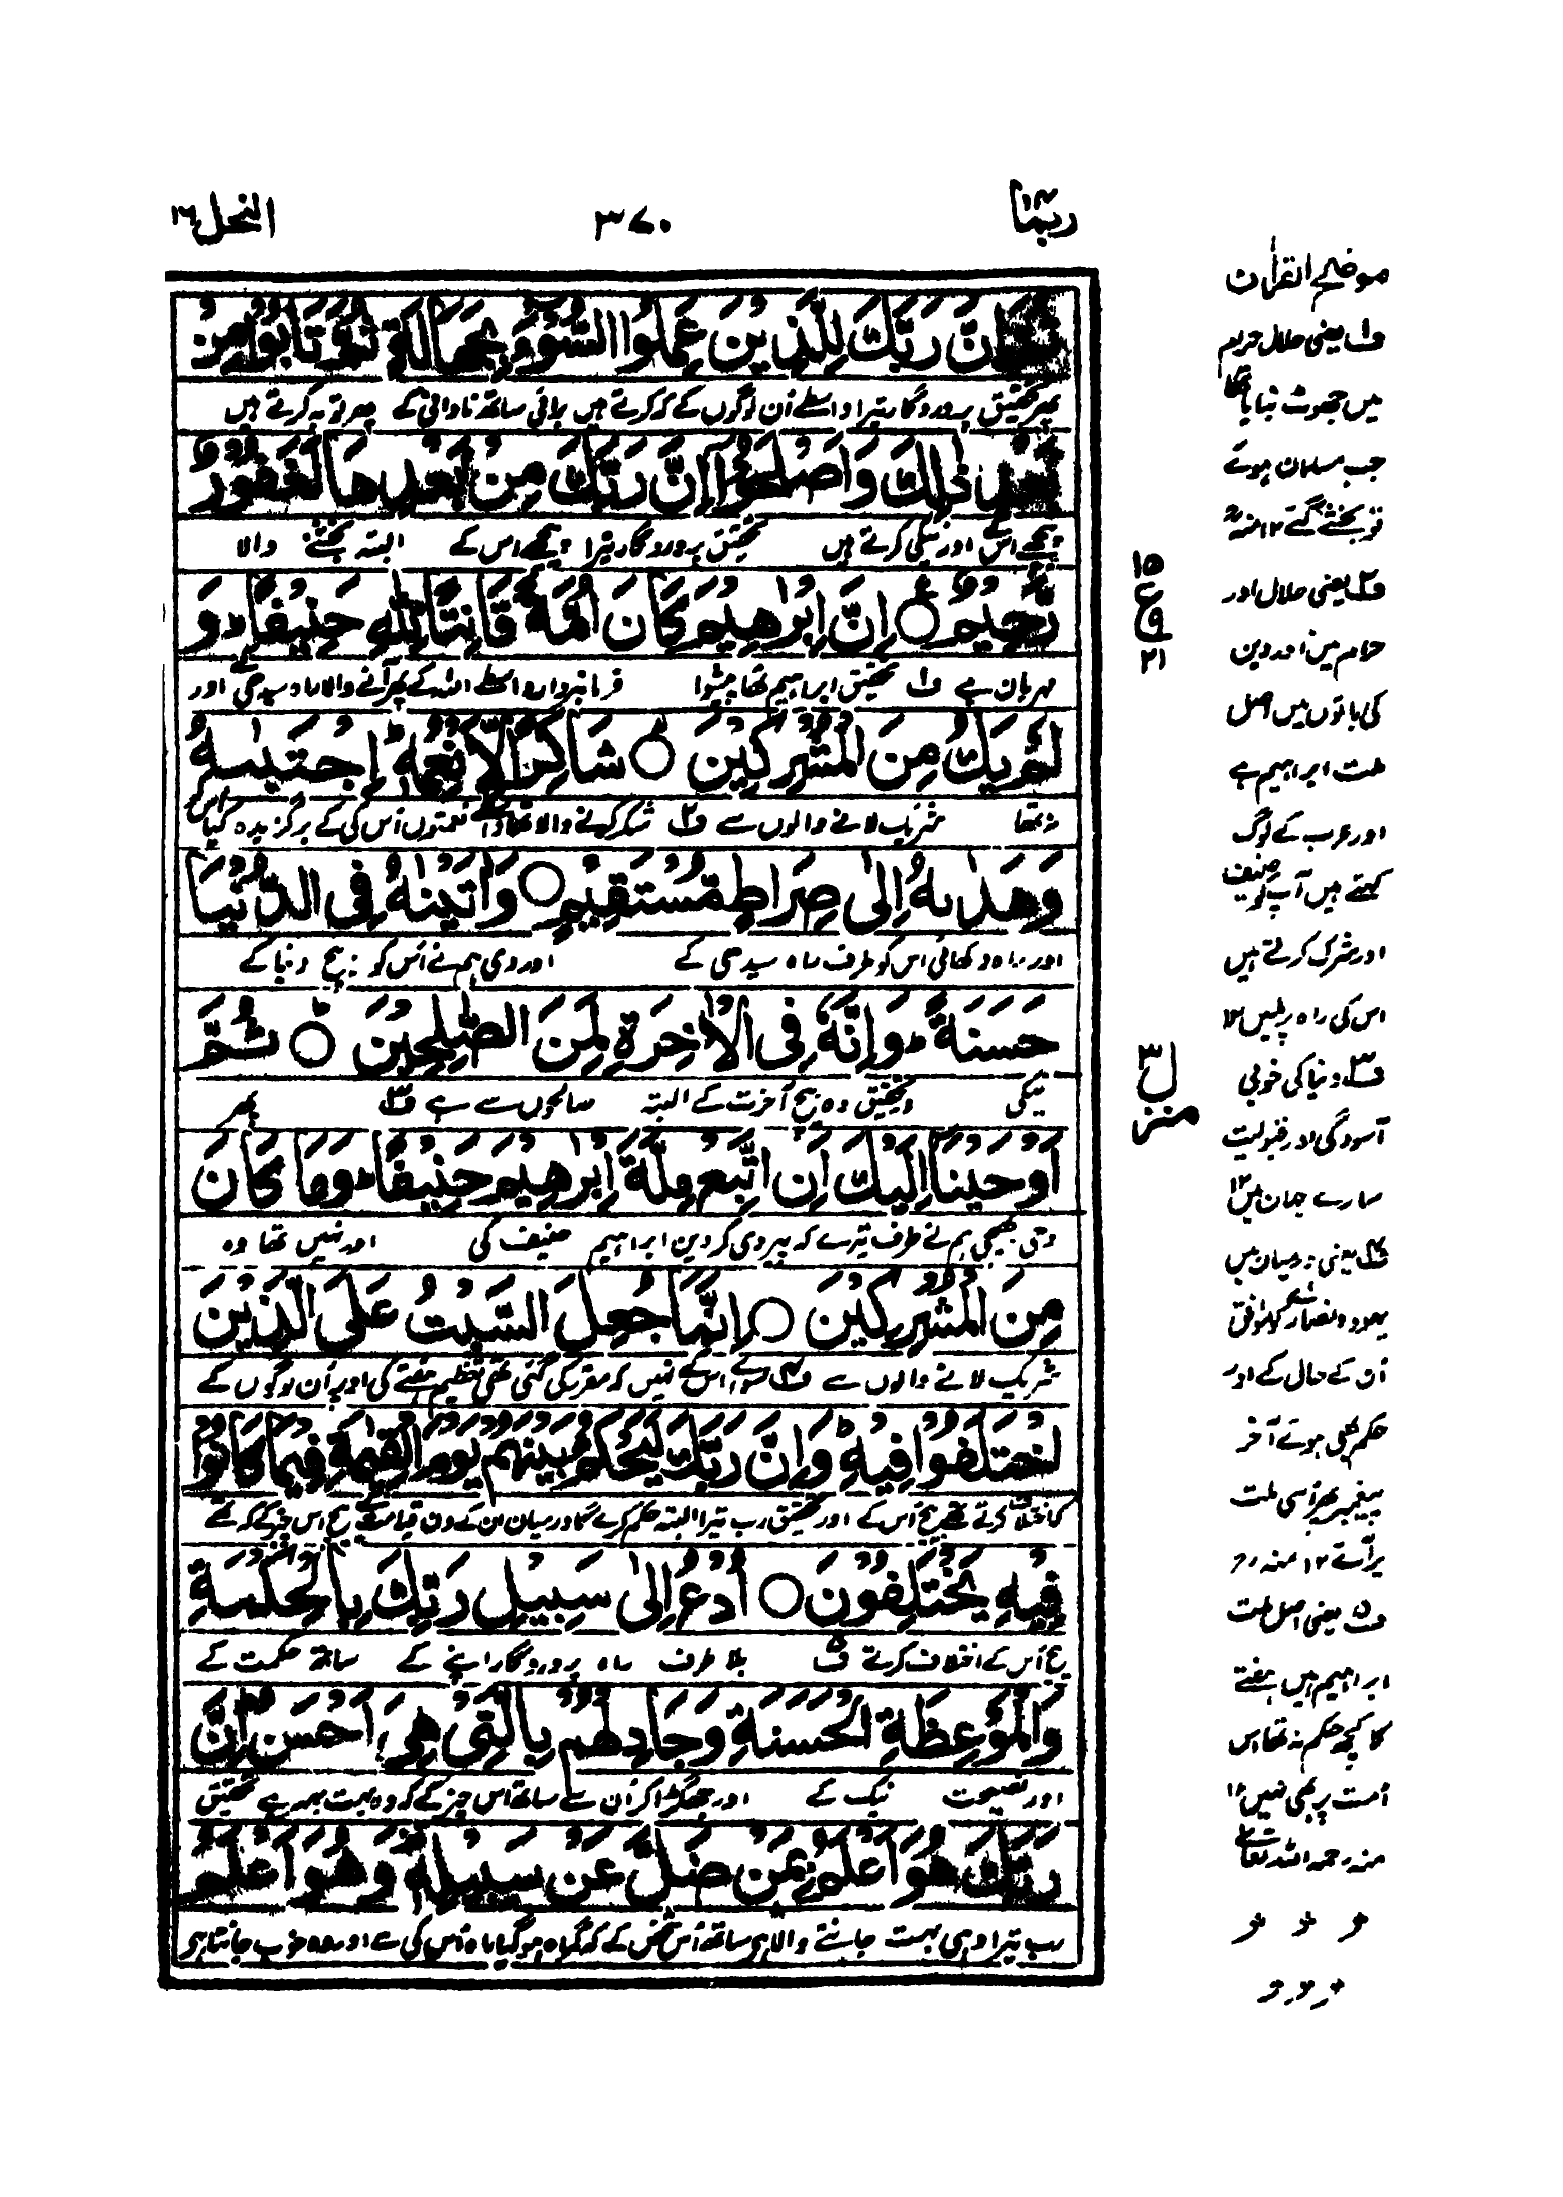 ربما ١٤
٣٧٠
النحل ١٦
ثُمَّ اِنَّ رَبَّكَ لِلَّذِيْنَ عَمِلُوا السُّوْٓءَ بِجَهَالَةٍ ثُمَّ تَابُوْا مِنْۢ
پھر تحقیق پروردگار تیرا واسطے اُن لوگوں کے کہ کرتے ہیں برائی ساتھ نادانی کے پھر توبہ کرتے ہیں
بَعْدِ ذٰلِكَ وَاَصْلَحُوْٓا اِنَّ رَبَّكَ مِنْۢ بَعْدِهَا لَغَفُوْرٌ
پیچھے اس کے اور نیکی کرتے ہیں تحقیق پروردگار تیرا پیچھے اس کے البتہ بخشنے والا
رَّحِيْمٌ ۝ اِنَّ اِبْرٰهِيْمَ كَانَ اُمَّةً قَانِتًا لِّلّٰهِ حَنِيْفًا ؕ وَ
مہربان ہے ف۱ تحقیق ابراہیم تھا پیشوا فرمانبردار واسطے اللہ کے پھر آنے والا راہ سیدھی کے اور
لَمْ يَكُ مِنَ الْمُشْرِكِيْنَ ۝ شَاكِرًا لِّاَنْعُمِهٖ ؕ اِجْتَبٰىهُ
نہ تھا شریک لانے والوں سے ف۲ شکر کرنے والا تھا واسطے نعمتوں اُس کی کے برگزیدہ کیا اُس کو
وَهَدٰىهُ اِلٰى صِرَاطٍ مُّسْتَقِيْمٍ ۝ وَاٰتَيْنٰهُ فِى الدُّنْيَا
اور راہ دکھائی اُس کو طرف راہ سیدھی کے اور دی ہم نے اُس کو بیچ دنیا کے
حَسَنَةً ؕ وَاِنَّهٗ فِى الْاٰخِرَةِ لَمِنَ الصّٰلِحِيْنَ ۝ ثُمَّ
نیکی و تحقیق وہ بیچ آخرت کے البتہ صالحوں سے ہے ف۳ پھر
اَوْحَيْنَآ اِلَيْكَ اَنِ اتَّبِعْ مِلَّةَ اِبْرٰهِيْمَ حَنِيْفًا ؕ وَمَا كَانَ
وحی بھیجی ہم نے طرف تیرے کہ پیروی کر دین ابراہیم حنیف کی اور نہیں تھا وہ
مِنَ الْمُشْرِكِيْنَ ۝ اِنَّمَا جُعِلَ السَّبْتُ عَلَى الَّذِيْنَ
شریک لانے والوں سے ف۴ سوائے اس کے نہیں کہ مقرر کی گئی تھی تعظیم ہفتے کی اوپر اُن لوگوں کے
اخْتَلَفُوْا فِيْهِ ؕ وَاِنَّ رَبَّكَ لَيَحْكُمُ بَيْنَهُمْ يَوْمَ الْقِيٰمَةِ فِيْمَا كَانُوْا
کہ اختلاف کرتے تھے بیچ اُس کے اور تحقیق رب تیرا البتہ حکم کرے گا درمیان ان کے دن قیامت کے بیچ اس چیز کے کہ تھے
فِيْهِ يَخْتَلِفُوْنَ ۝ اُدْعُ اِلٰى سَبِيْلِ رَبِّكَ بِالْحِكْمَةِ
بیچ اُس کے اختلاف کرتے ف۵ بلا طرف راہ پروردگار اپنے کے ساتھ حکمت کے
وَالْمَوْعِظَةِ الْحَسَنَةِ وَجَادِلْهُمْ بِالَّتِىْ هِىَ اَحْسَنُ ؕ اِنَّ
اور نصیحت نیک کے اور جھگڑا کر اُن سے ساتھ اُس چیز کے کہ وہ بہت بہتر ہے تحقیق
رَبَّكَ هُوَ اَعْلَمُ بِمَنْ ضَلَّ عَنْ سَبِيْلِهٖ وَهُوَ اَعْلَمُ
رب تیرا وہی بہت جاننے والا ہے ساتھ اُس شخص کے کہ گمراہ ہو گیا راہ اُس کی سے اور وہ خوب جانتا ہے
١٥
ع
٢١
منزل ٣
موضح القرآن
ف۱ یعنی حلال حرام
میں جھوٹ بنایا تھا
جب مسلمان ہوئے
تو بخشے گئے ۱۲ منہ رح
ف۲ یعنی حلال اور
حرام میں اور دین
کی باتوں میں اصل
ملت ابراہیم ہے
اور عرب کے لوگ
کہتے ہیں آپ کو حنیف
اور شرک کرتے ہیں
اس کی راہ پر نہیں ۱۲
ف۳ دنیا کی خوبی
آسودگی اور قبولیت
سارے جہان میں ۱۲
ف۴ یعنی درمیان میں
یہود و نصاریٰ کو موافق
اُن کے حال کے اور
حکم بھی ہوئے آخر
پیغمبر پھر اُسی ملت
پر آئے ۱۲ منہ رح
ف۵ یعنی اصل ملت
ابراہیم میں ہفتے
کا کچھ حکم نہ تھا اس
اُمت پر بھی نہیں ۱۲
منہ رحمہ اللہ تعالیٰ